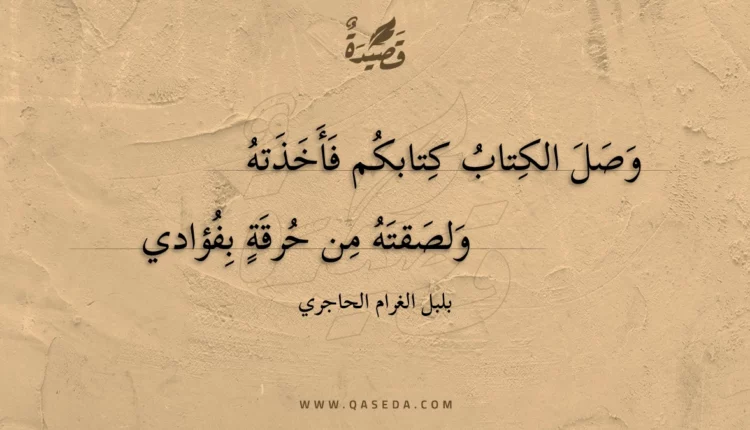 قَصِيدَةٌ
وَصَلَ الكِتابُ كِتابكُم فَأَخَذَتهُ
وَلصَقتَهُ مِن حُرقَةٍ بِفُؤادي
بلبل الغرام الحاجري
WWW.QASEDA.COM